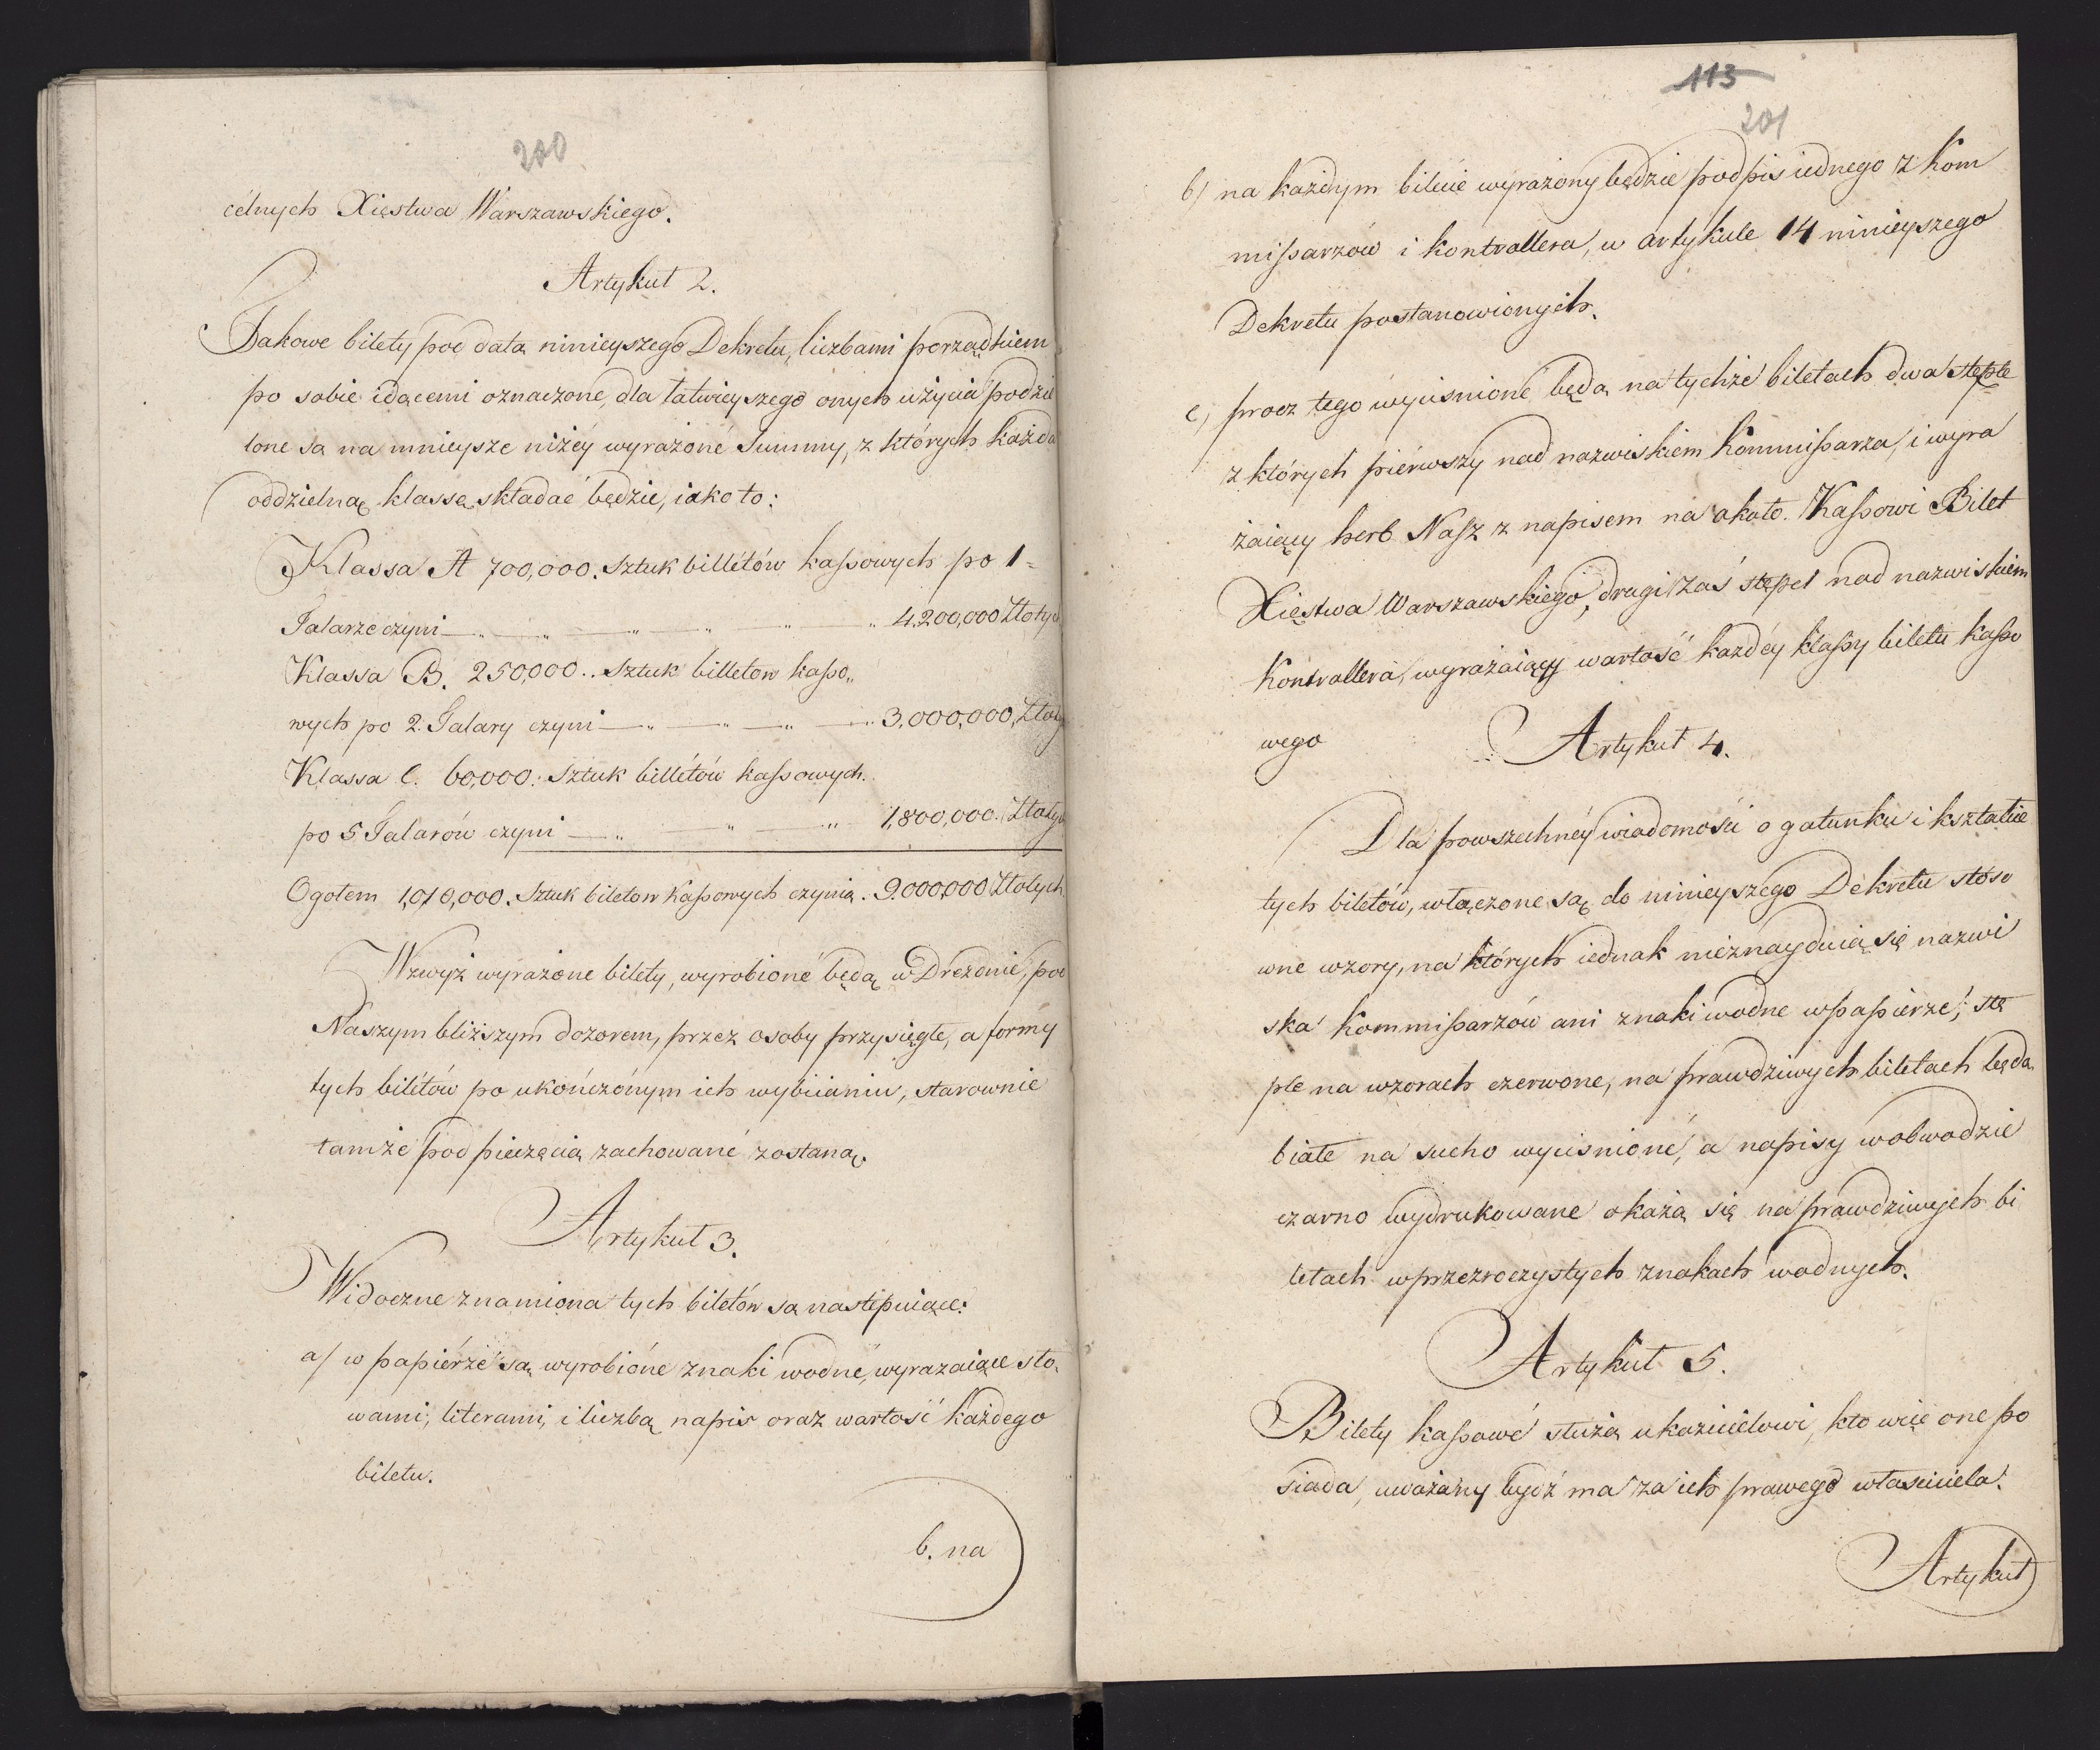 200
célnych Xięstwa Warszawskiego.
Artykuł 2.
Takowe bilety pod datą ninieyszego Dekretu, liczbami porządkiem
po sobie idącemi oznaczone, dla łatwieyszego onych użycia podzie
lone są na mnieysze niżéy wyrażoné Summy, z których każda
oddzielną klassę składać będzie, iako to:
Klassa A 700,000. sztuk billétów kaſsowych po 1 =
Talarze czyni — „ — „ — „ — „ — „ — „ 4,200,000 Złotych
Klassa B. 250,000.. sztuk billetow kaſso„
wych po 2. Talary czyni — „ — „ — „ — „ 3,000,000, Złotych
Klassa C. 60,000: sztuk billétów kaſsowych.
po 5 Talarów czyni — „ — „ — „ 1,800,000. Złotych
Ogołem 1,010,000. Sztuk biletow Kaſsowych czynią. 9.000,000 Złotych
Wzwyż wyrażone bilety, wyrobioné będą w Dreznie, pod
Naszym bliższym dozorem, przez osoby przysięgłe, a formy
tych bilétów po ukończónym ich wybiianiu, starownie
tamże pod pieczęcią zachowané zostaną.
Artykuł 3.
Widoczne znamiona tych biletów są następuiące:
a/ w papiérze są wyrobióne znaki wodné, wyrazaiące sło„
wami, literami, i liczbą napis oraz wartość każdego
biletu.
b. na
113
201
b/ na każdym bilecie wyrażony będzie podpis iednego z Kom
miſsarzów i kontrollera, w artykule 14 ninieyszego
Dekretu postanowionych.
c, procz tego wyciśnioné będą na tychże biletach dwa stęple
z których piérwszy nad nazwiskiem Kommiſsarza, i wyra
żaiący herb Nasz z napisem na około. Kaſsowi Bilet
Xięstwa Warszawskiego, drugi zaś stępel nad nazwiskiem
Kontrollera, wyrażaiący wartość każdéy klaſsy biletu kaſso
wego
Artykuł 4.
Dla powszechnéy wiadomości o gatunku i kształcie
tych biletów, włączone są do ninieyszego Dekretu stoso
wne wzory, na których iednak nieznayduią się nazwi
ska Kommiſsarzów ani znaki wodne w papierze, stę
ple na wzorach czerwone, na prawdziwych biletach będą
białe na sucho wyciśnioné, a napisy w obwodzie
czarno wydrukowane okażą się na prawdziwych bi
letach w przezroczystych znakach wodnych.
Artykuł 5.
Bilety kaſsowé służą ukazicielowi, kto więc one po
siada, uważany bydź ma za ich prawego właściciela.
Artykuł